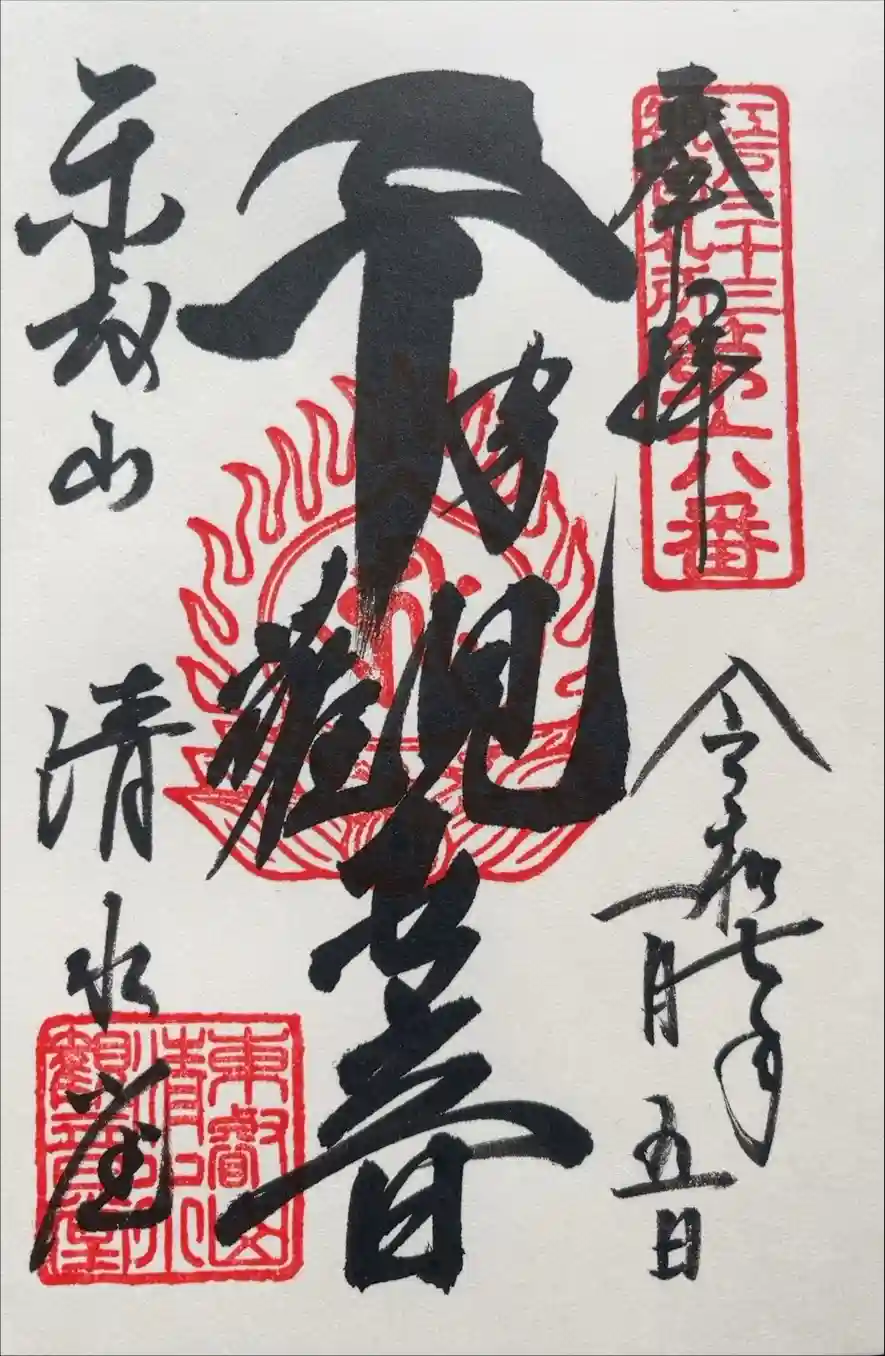 奉拝
江戸三十三
観音札所
第六番
令和七年
一月五日
千手觀世音
東叡山
清水堂
東叡山
清水
観音堂